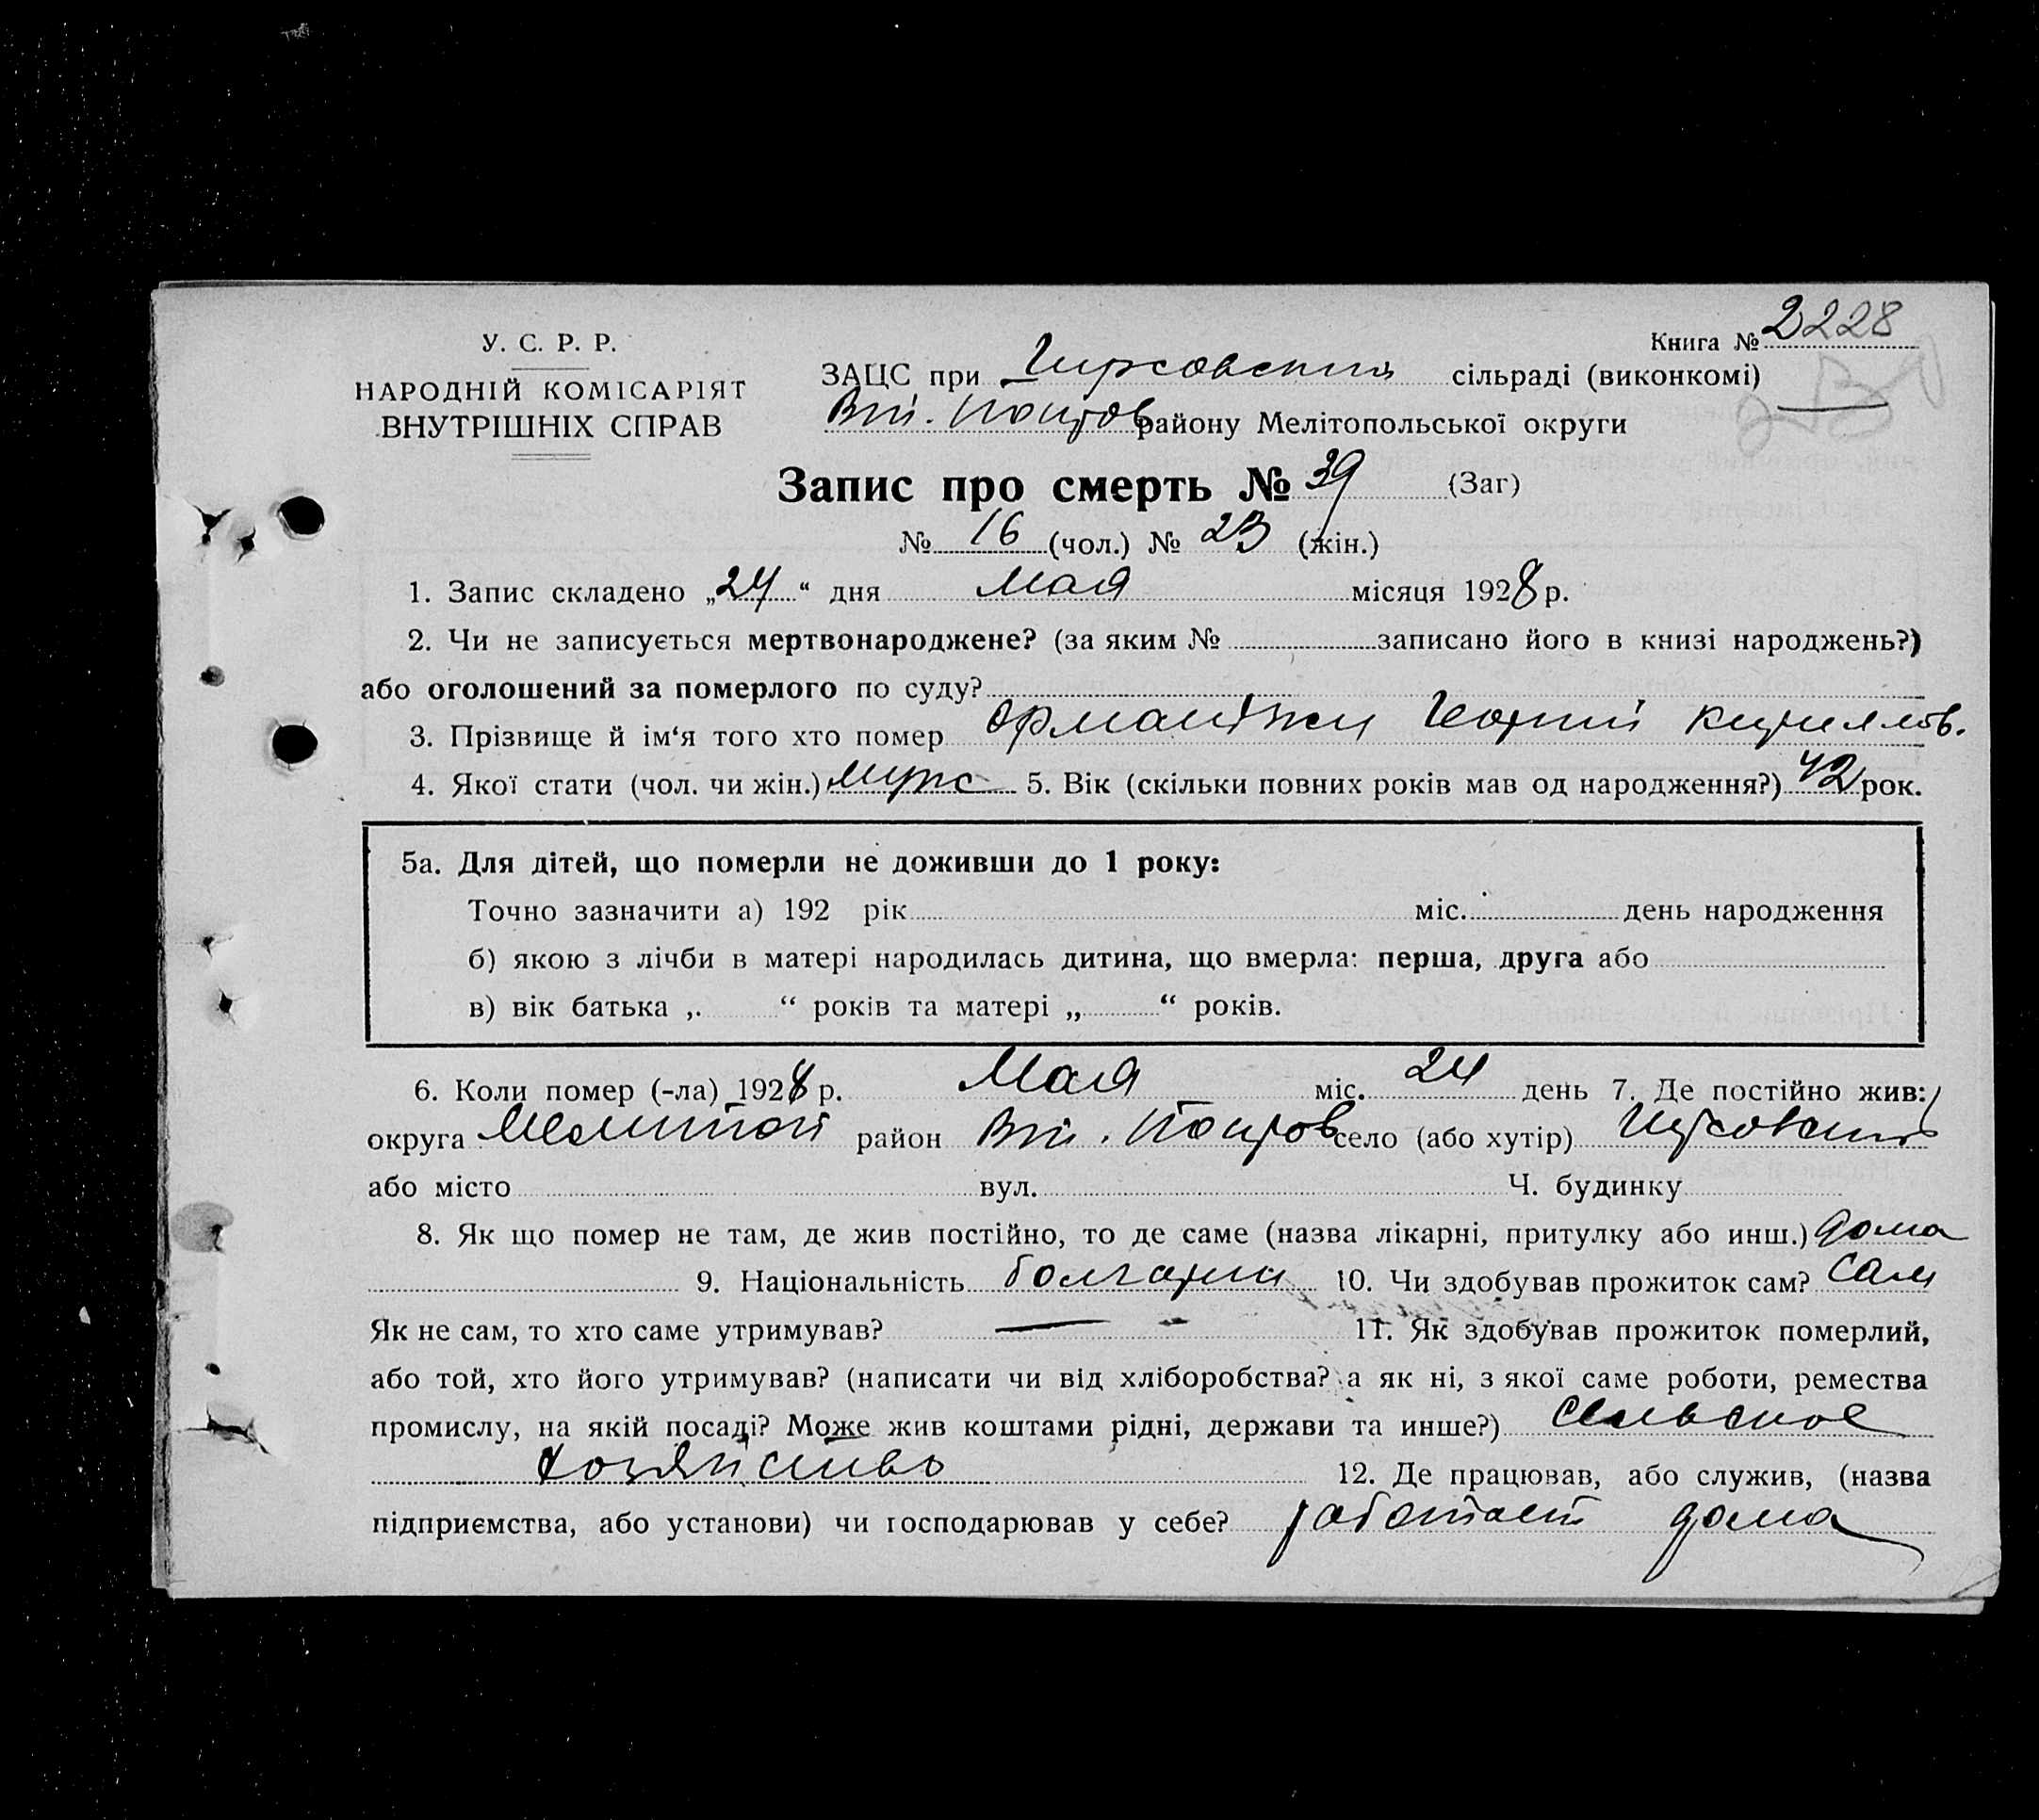 У. С. Р. Р.
НАРОДНІЙ КОМІСАРІЯТ
ВНУТРІШНІХ СПРАВ
Книга № 2228
ЗАЦС при Гирсовский сільраді (виконкомі)
Вт. Покров району Мелітопольської округи
Запис про смерть № 39 (Заг)
№ 16 (чол.) № 23 (жін.)
1. Запис складено „24“ дня мая місяця 1928 р.
2. Чи не записується мертвонароджене? (за яким № записано його в книзі народжень?)
або оголошений за померлого по суду?
3. Прізвище й ім‘я того хто помер Орманджи Георгий Кириллов.
4. Якої стати (чол. чи жін.) Мужс 5. Вік (скільки повних років мав од народження?) 42 рок.
5а. Для дітей, що померли не доживши до 1 року:
Точно зазначити а) 192 рік міс. день народження
б) якою з лічби в матері народилась дитина, що вмерла: перша, друга або
в) вік батька „ “ років та матері „ “ років.
6. Коли помер (-ла) 1928 р. Мая міс. 24 день 7. Де постійно жив:
округа Мелитоп район Вт. Покров село (або хутір)
або місто вул. Ч. будинку
8. Як що помер не там, де жив постійно, то де саме (назва лікарні, притулку або инш.) дома
9. Національність болгарин 10. Чи здобував прожиток сам? Сам
Як не сам, то хто саме утримував? — 11. Як здобував прожиток померлий,
або той, хто його утримував? (написати чи від хліборобства? а як ні, з якої саме роботи, ремества
промислу, на якій посаді? Може жив коштами рідні, держави та инше?) Сельское
хозяйство 12. Де працював, або служив, (назва
підприємства, або установи) чи господарював у себе? работает дома